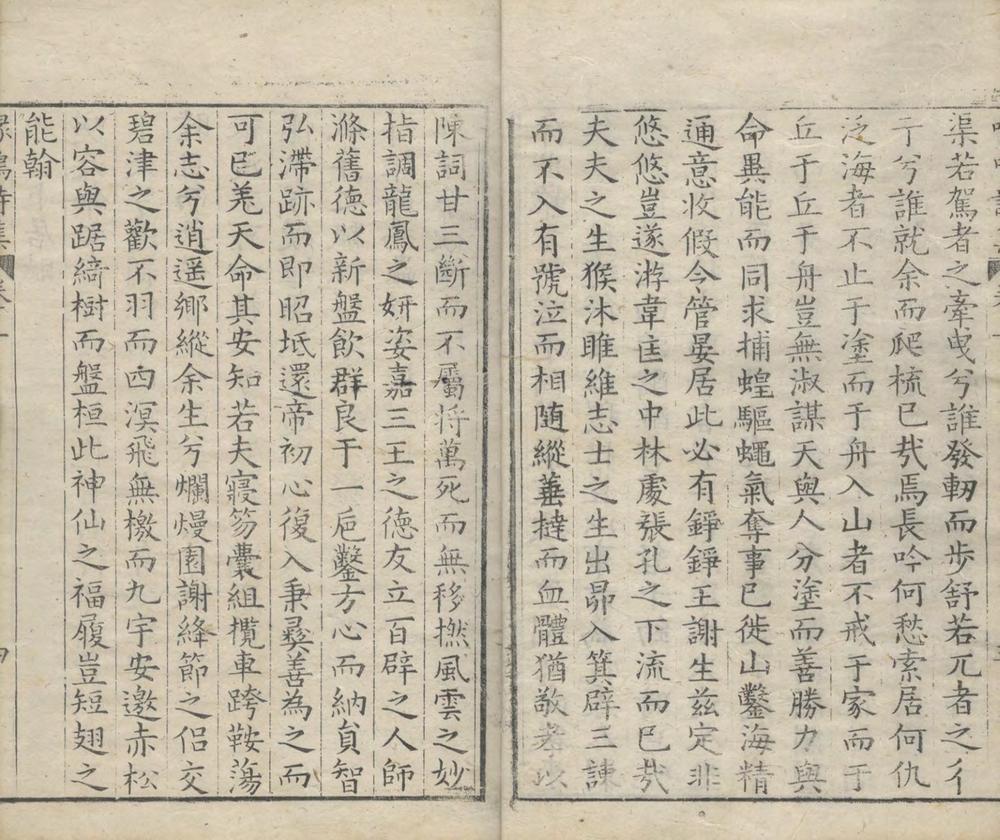 渠若駕者之牽曳兮誰發軔而步舒若兀者之彳
亍兮誰就余而爬梳已㢤焉長吟何愁索居何仇
泛海者不止于塗而于舟入山者不戒于家而于
丘于丘于舟豈無淑謀天與人分塗而善勝力與
命異能而同求捕蝗驅蠅氣奪事已徙山鑿海精
通意收假令管晏居此必有錚錚王謝生茲定非
悠悠豈遂游韋匡之中林處張孔之下流而已㢤
夫夫之生猴沐雎維志士之生出昴入箕辟三諫
而不入有號泣而相随縱菙撻而血體猶敬老以
陳詞甘三斷而不屬将萬死而無移撚風雲之妙
指調龍鳳之妍姿嘉三王之德友立百辟之人師
滌舊德以新盤飲群良于一巵鑿方心而納貟智
弘滯跡而即昭坻還帝初心復入秉彜善為之而
可已羗天命其安知若夫寢笏囊組攬車跨鞍蕩
余志兮逍遥鄉縱余生兮爛熳園謝絳節之侣交
碧津之歡不羽而四溟飛無檄而九宇安邀赤松
以容與踞綺樹而盤桓此神仙之福履豈短翅之
能翰